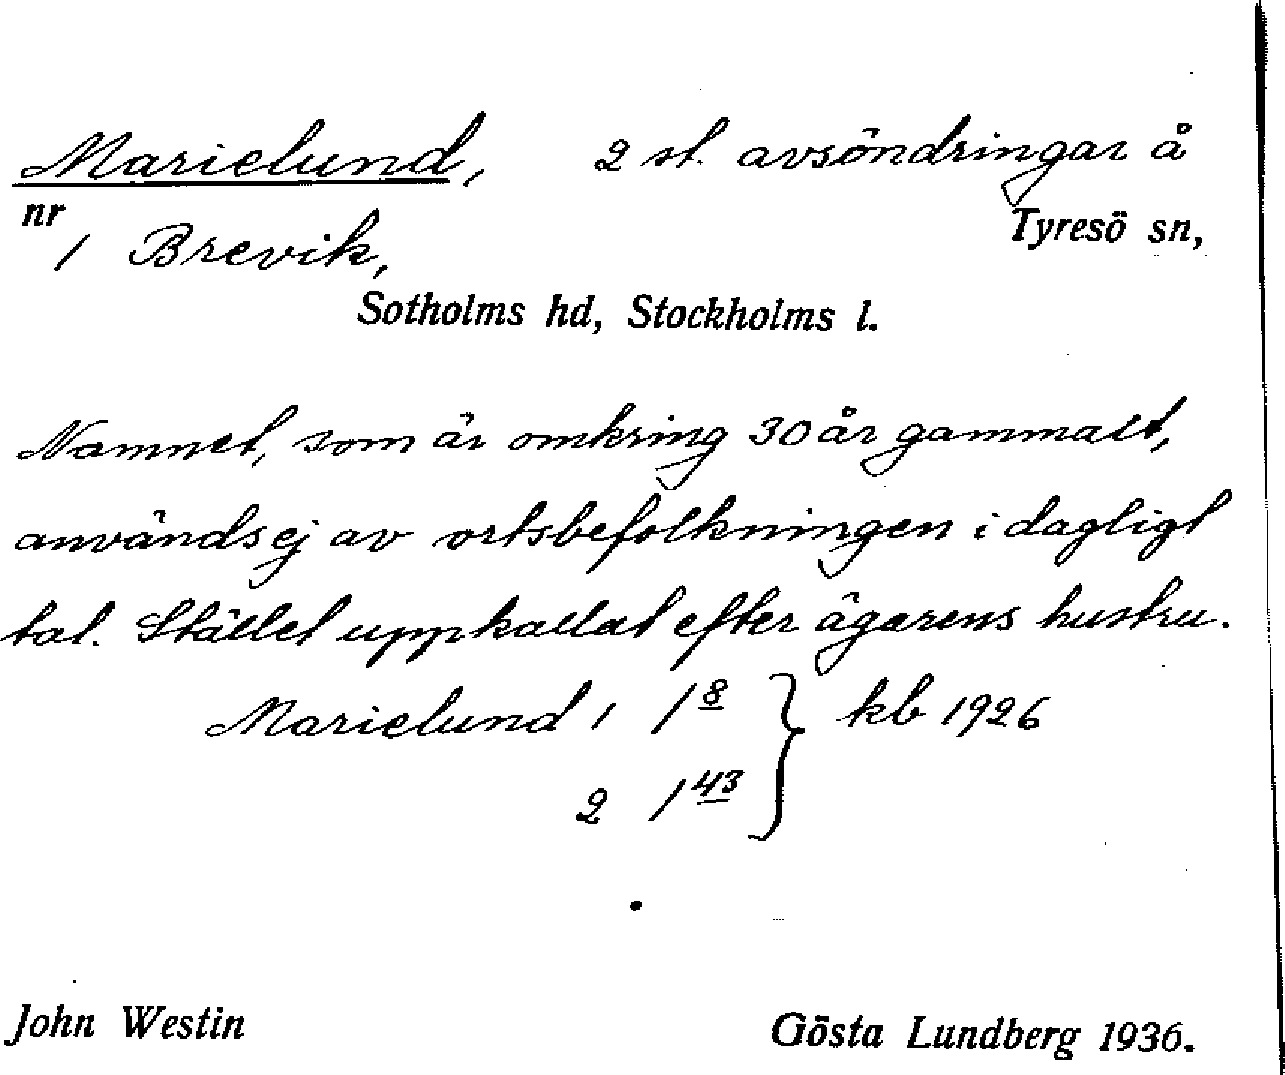 Marielund, 2 st. avsöndringar å
nr 1 Brevik, Tyresö sn,
Sotholms hd, Stockholms l.
Namnet, som är omkring 30 år gammalt,
användes ej av ortsbefolkningen i dagligt
tal. Stället uppkallat efter ägarens hustru.
Marielund 1 1 8 } kb 1926
2 1 43
John Westin Gösta Lundberg 1936.